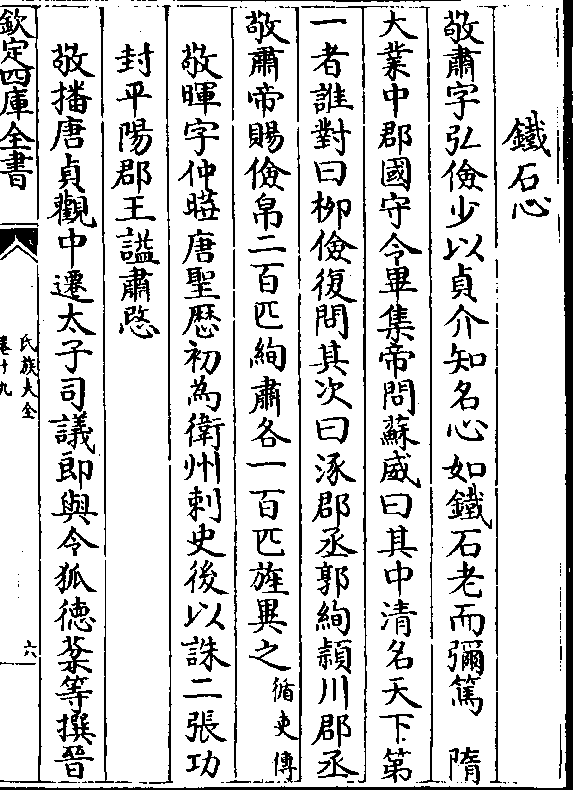 鐵石心
敬肅字弘儉少以貞介知名心如鐵石老而彌篤　隋
大業中郡國守令畢集帝問蘇威曰其中清名天下第
一者誰對曰柳儉復問其次曰涿郡丞郭絢潁川郡丞
敬肅帝賜儉帛二百匹絢肅各一百匹旌異之循吏傳
敬暉字仲曄唐聖歷初為衛州刺史後以誅二張功
封平陽郡王諡肅愍
敬播唐貞觀中遷太子司議郎與令狐德棻等撰晉
欽定四庫全書
氏族大全
卷十九
六